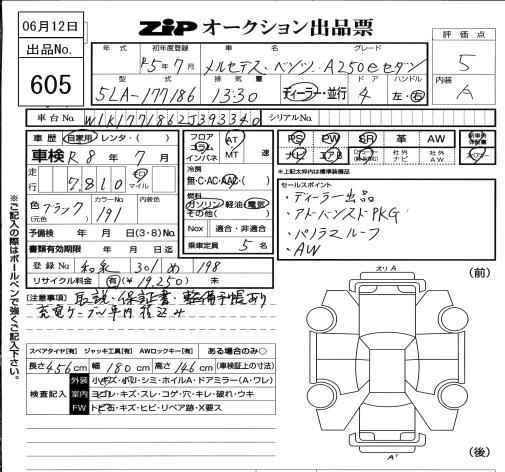 06月12日
ZIP オークション出品票
出品No.
605
年式
初年度登録
車名
グレード
評価点
R5年7月
メルセデス・ベンツ・A250eセダン
5
型式
排気量
ドア
ハンドル
内装
5LA-177186
1330
ディーラー・並行
4
左・右
A
車台No.
W1K1771862J393340
シリアルNo.
車歴
自家用・レンタ・( )
車検 R8年7月
走行
7,810
キロ
マイル
色
(元色)
ブラック
カラーNo.
191
内装色
予備検 年 月 日(3・8)No.
書類有効期限 年 月 日迄
登録No. 和泉 301 め 198
リサイクル料金 有(¥19,250) 未
フロア
コラム
インパネ
AT
MT
速
冷房
無・C・AC・AAC・( )
燃料
ガソリン・軽油・電気
その他( )
Nox
適合・非適合
乗車定員 5名
PS
PW
SR
革
AW
新車時保証書
ナビ
エアB
社外ナビ
社外AW
*上記太枠内は標準装備品
セールスポイント
・ディーラー出品
・アドバンストPKG
・パノラマルーフ
・AW
【注意事項】取説・保証書・整備手帳あり
充電ケーブル車内積込み
スペアタイヤ[有]
ジャッキ工具[有]
AWロックキー[有]
ある場合のみ○
長さ456cm
幅180cm
高さ146cm
(車検証上の寸法)
検査記入
外装
小キズ・小凹・シミ・ホイルA・ドアミラー(A・ワレ)
室内
ヨゴレ・キズ・スレ・コゲ・穴・キレ・破れ・ウキ
FW
トビ石・キズ・ヒビ・リペア跡・X要ス
スリA
(前)
A'
(後)
※ご記入の際はボールペンで強くご記入下さい。